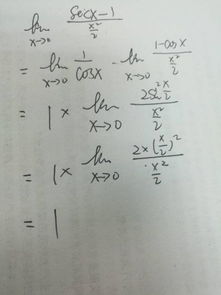 lim x→0 (secx-1)/(x²/2)
= lim x→0 1/cosx · lim x→0 (1-cosx)/(x²/2)
= 1 × lim x→0 (2sin² x/2)/(x²/2)
= 1 × lim x→0 (2×(x/2)²)/(x²/2)
= 1